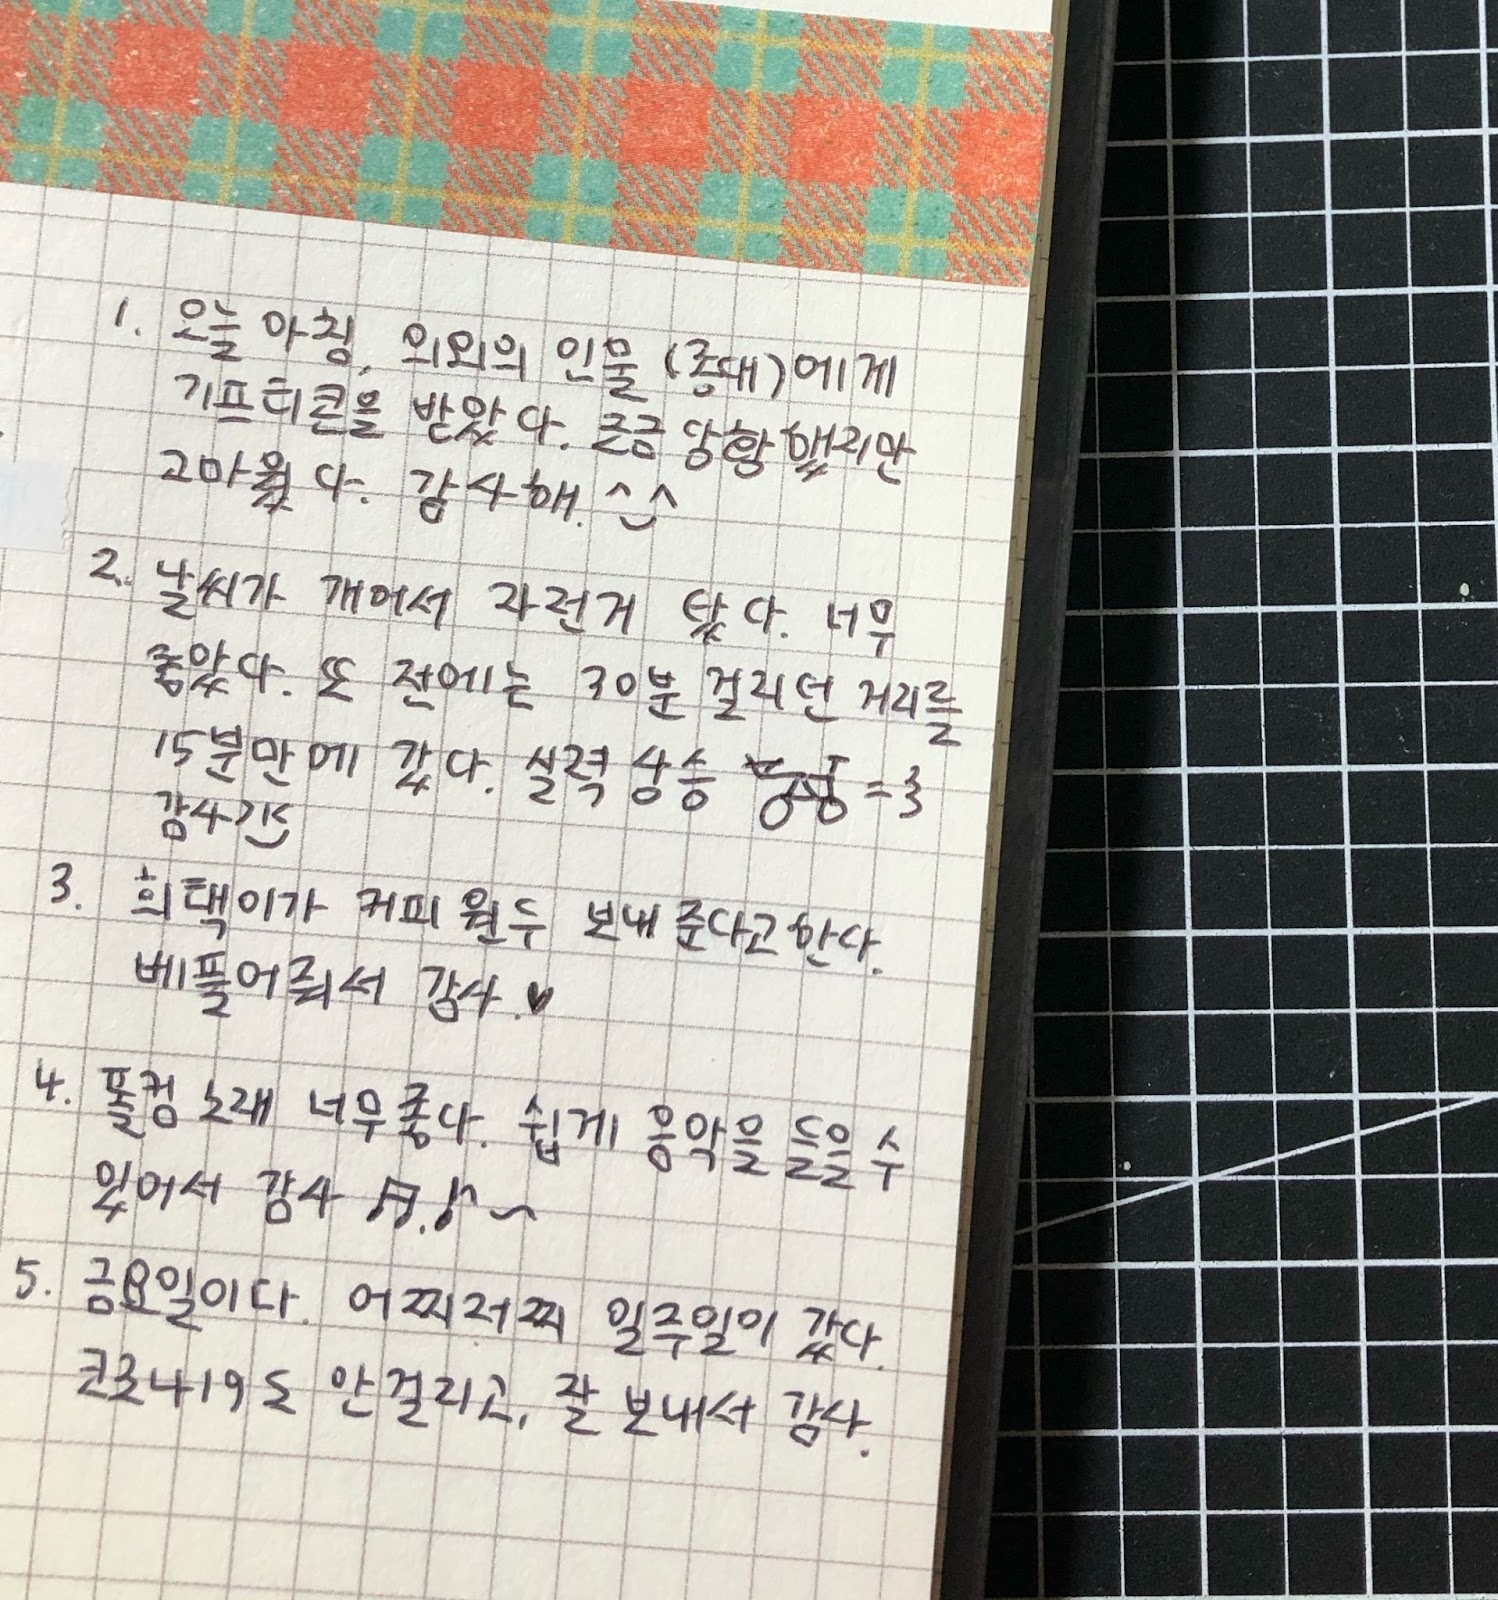 1. 오늘 아침, 의외의 인물 (종대)에게
기프티콘을 받았다. 조금 당황했지만
고마웠다. 감사해. ^‿^
2. 날씨가 개어서 자전거 탔다. 너무
좋았다. 또 전에는 30분 걸리던 거리를
15분만에 갔다. 실력 상승 =3
감사
3. 희택이가 커피 원두 보내 준다고 한다.
베풀어줘서 감사.♥
4. 폴킴 노래 너무 좋다. 쉽게 음악을 들을 수
있어서 감사 ♬.♪~
5. 금요일이다. 어찌저찌 일주일이 갔다.
코로나19도 안 걸리고, 잘 보내서 감사.